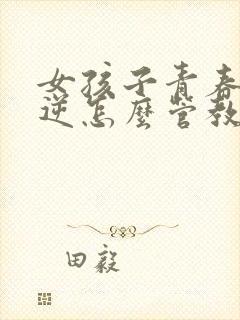 女孩子青春
逆怎麼管教
田毅